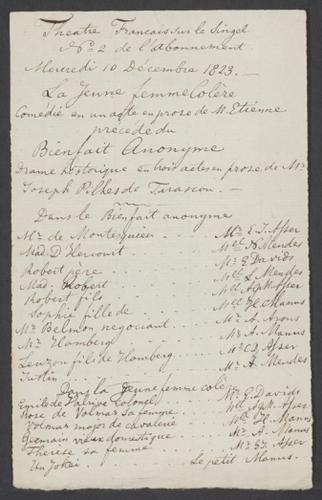 Theatre Francais sur le Singel
No 2 de l'abonnement
Mercredi 10 Décembre 1823. —
La Jeune femme Colère
Comédie en un acte en prose de Mr Etiénne
précédé du
Bienfait Anonyme
Drame historique en trois actes en prose de Mr
Joseph Pilhes de Tarascon. —
Dans le Bienfait anonyme
Mr de Montesquieu . . . Mr E. J. Asser
Mad. D'Hercourt . . . Mel N. Mendes
Robert père . . . Mr E. Davids
Mad. Robert . . . Mel L. Mendes
Robert fils . . . Mr A.
Sophie fille de . . . Mel H. Manus
Mr Belmon negociant . . . Mr A. Arons
Mr Homberg . . . Mr A. Manus
fils de Homberg . . . Mr Asser
Justin . . . Mr A. Mendes
Dans la Jeune femme colè
Emile de Valrive Colonel . . . Mr E. Davids
Rose de Volmar sa femme . . . Mel Asser
Volmar major de cavalerie . . . Mr H. Manus
Germain vieux domestique . . . Mr A. Manus
Therese sa femme . . . Asser
Un Jokei . . . Le petit Manus.